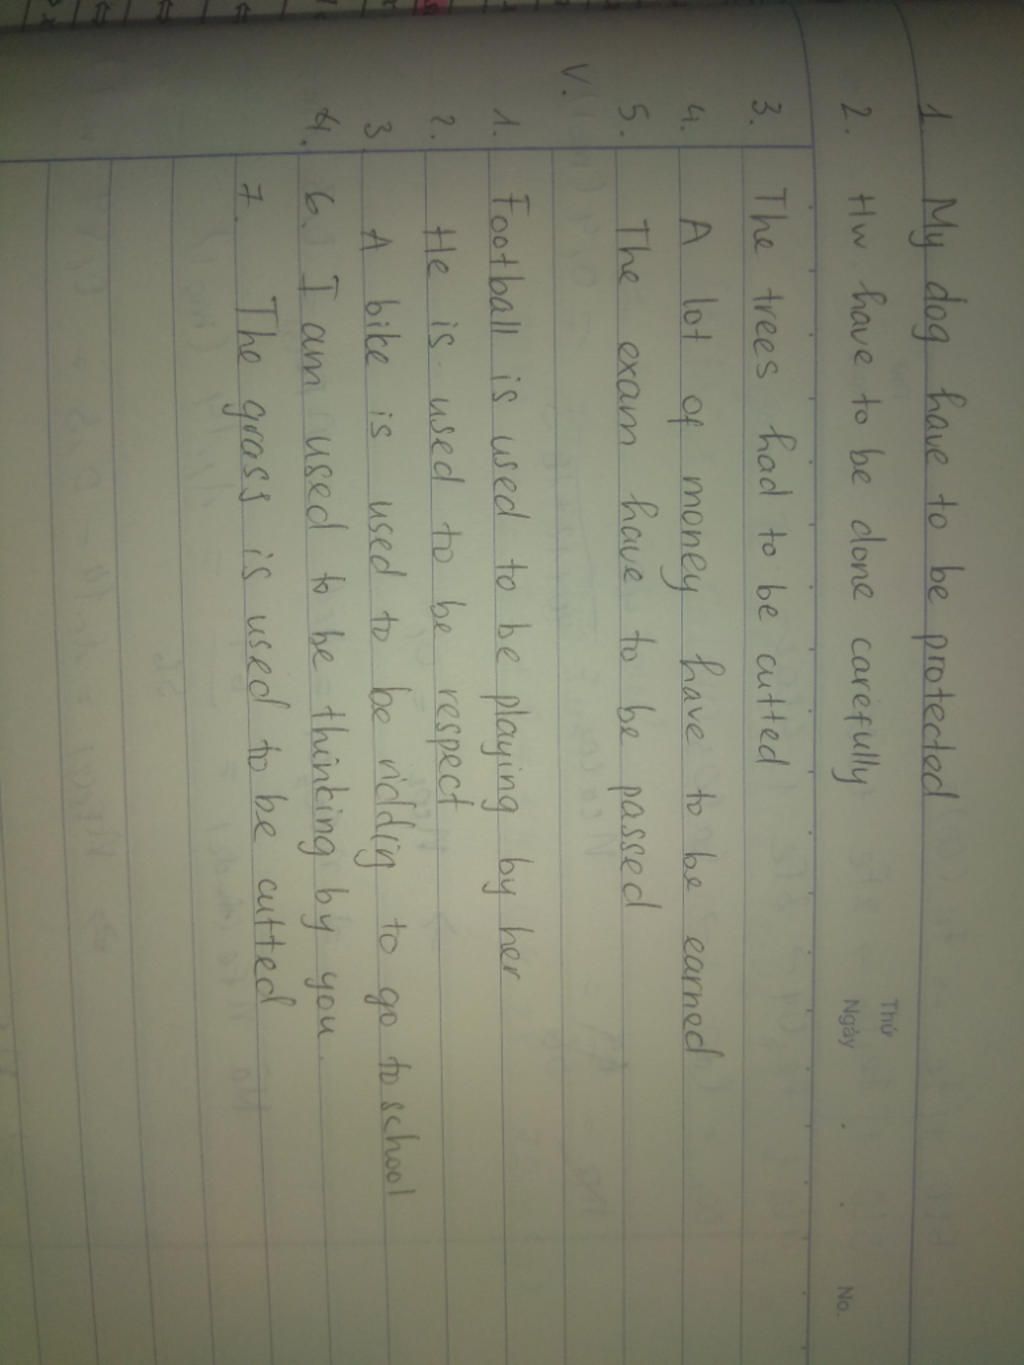 1. My dog have to be protected
Thứ
2. Hw have to be done carefully
Ngày No.
3. The trees had to be cutted
4. A lot of money have to be earned
5. The exam have to be passed
V.
1. Football is used to be playing by her
2. He is used to be respect
3. A bike is used to be riddig to go to school
4. 6. I am used to be thinking by you.
7. The grass is used to be cutted